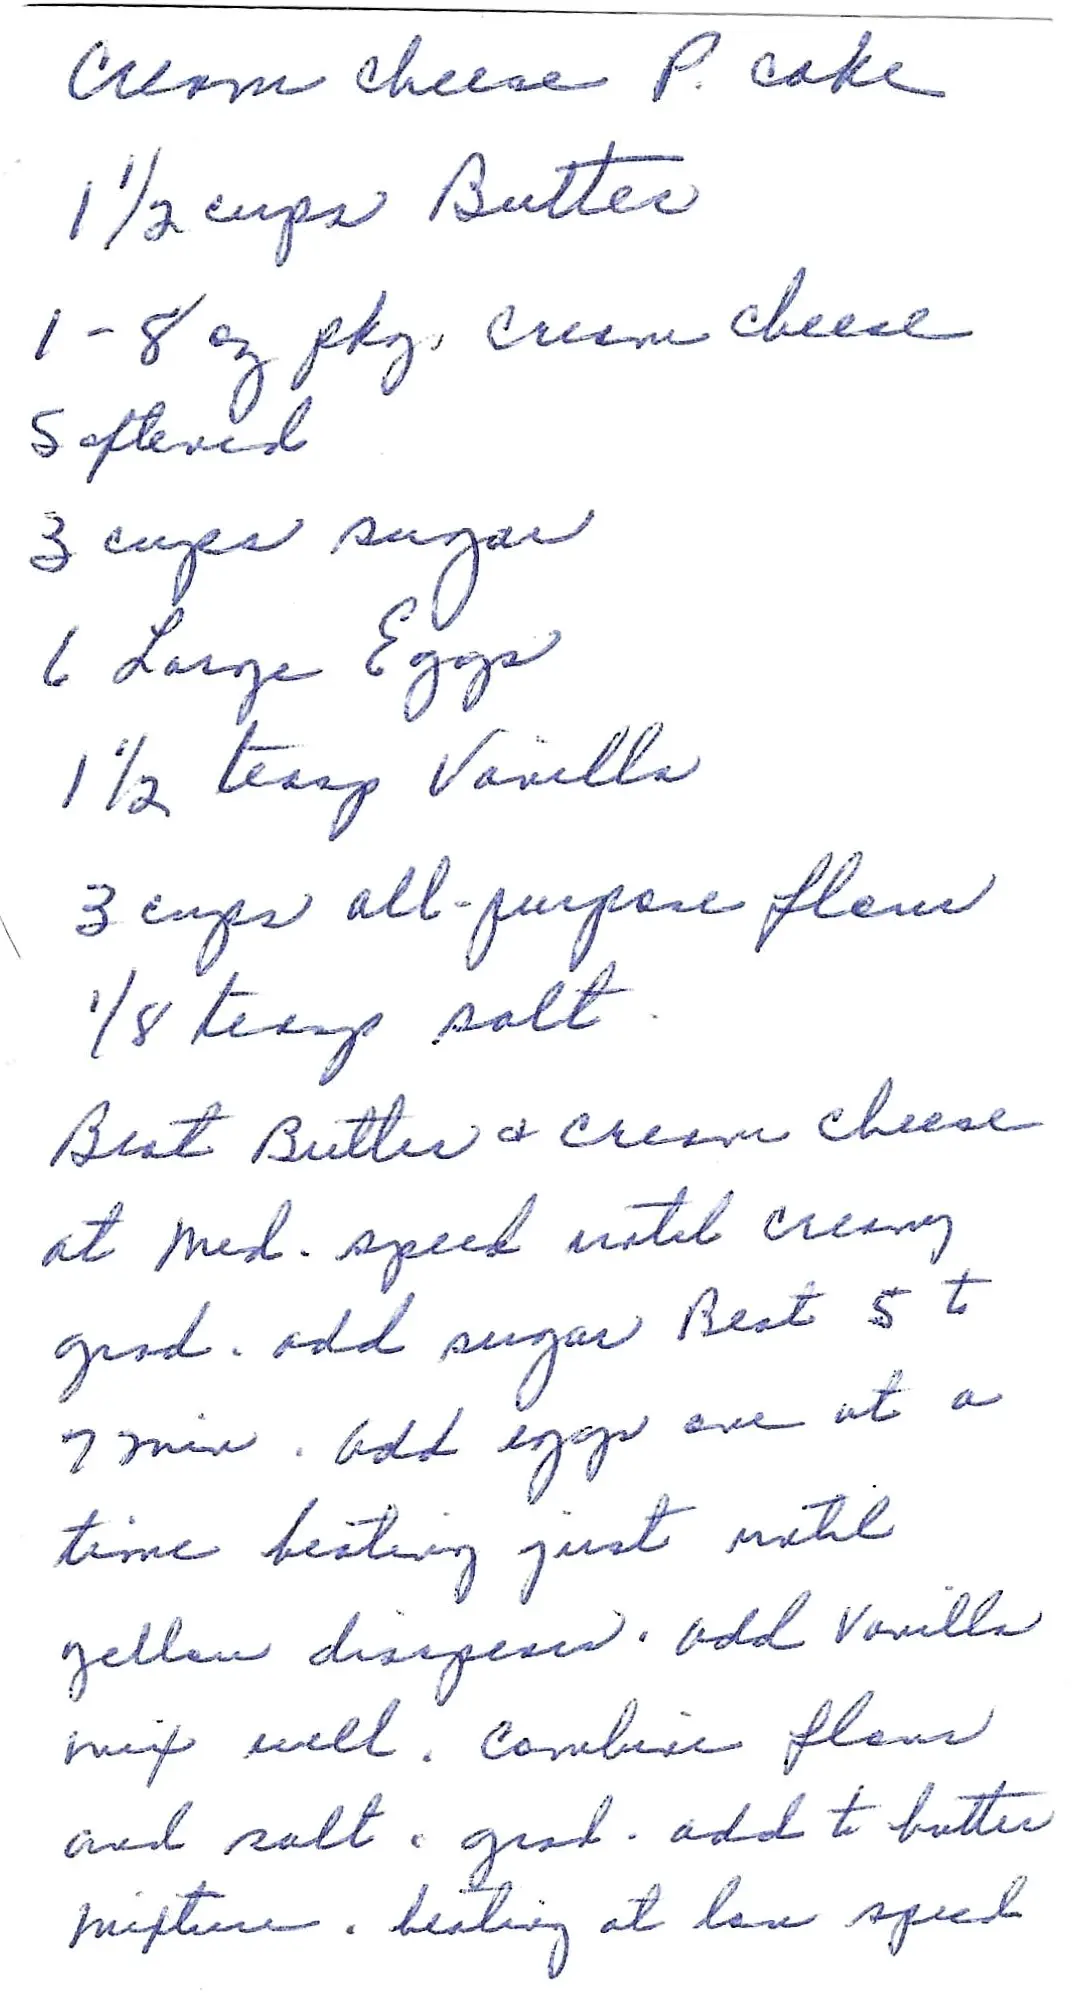 Cream cheese P. cake
1 1/2 cups Butter
1 - 8 oz pkg. cream cheese
Softened
3 cups sugar
6 Large Eggs
1 1/2 teasp Vanilla
3 cups all-purpose flour
1/8 teasp salt
Beat Butter & cream cheese
at Med. speed until creamy
grad. add sugar Beat 5 to
7 min. add eggs one at a
time beating just until
yellow disapears. add Vanilla
mix well. Combine flour
and salt. grad. add to butter
mixture. beating at low speed